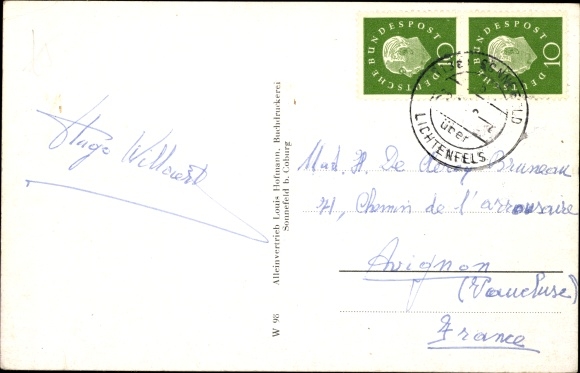 DEUTSCHE BUNDESPOST
10
DEUTSCHE BUNDESPOST
10
SONNEFELD
über
LICHTENFELS
Hugo Willaert
Alleinvertrieb Louis Hofmann, Buchdruckerei
Sonnefeld b. Coburg
W 98
Mad. H. De Clercq Bruneau
71, Chemin de l'arrousaire
Avignon
(Vaucluse)
France